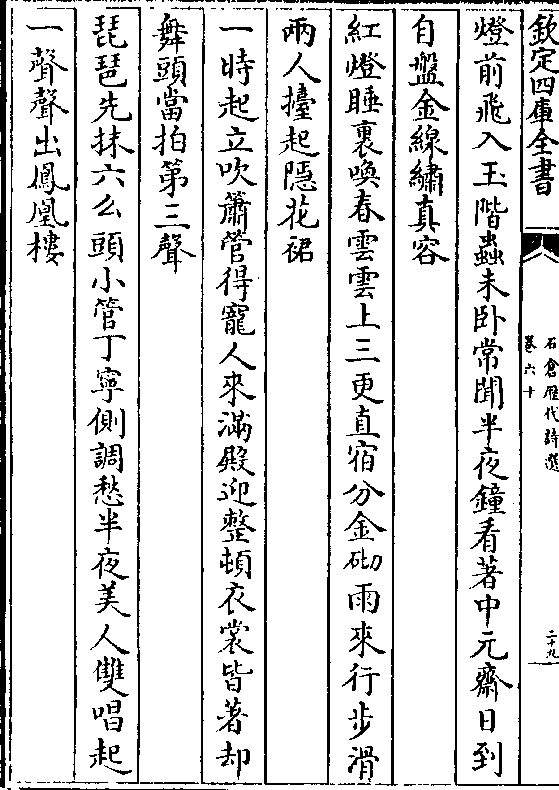 欽定四庫全書
石倉歷代詩選
卷六十
二十九
燈前飛入玉階蟲未卧常聞半夜鐘看著中元齋日到
自盤金線繡真容
紅燈睡裏喚春雲雲上三更直宿分金砌雨來行步滑
兩人擡起隱花裙
一時起立吹簫管得寵人來滿殿迎整頓衣裳皆著却
舞頭當拍第三聲
琵琶先抹六么頭小管丁寧側調愁半夜美人雙唱起
一聲聲出鳳凰樓